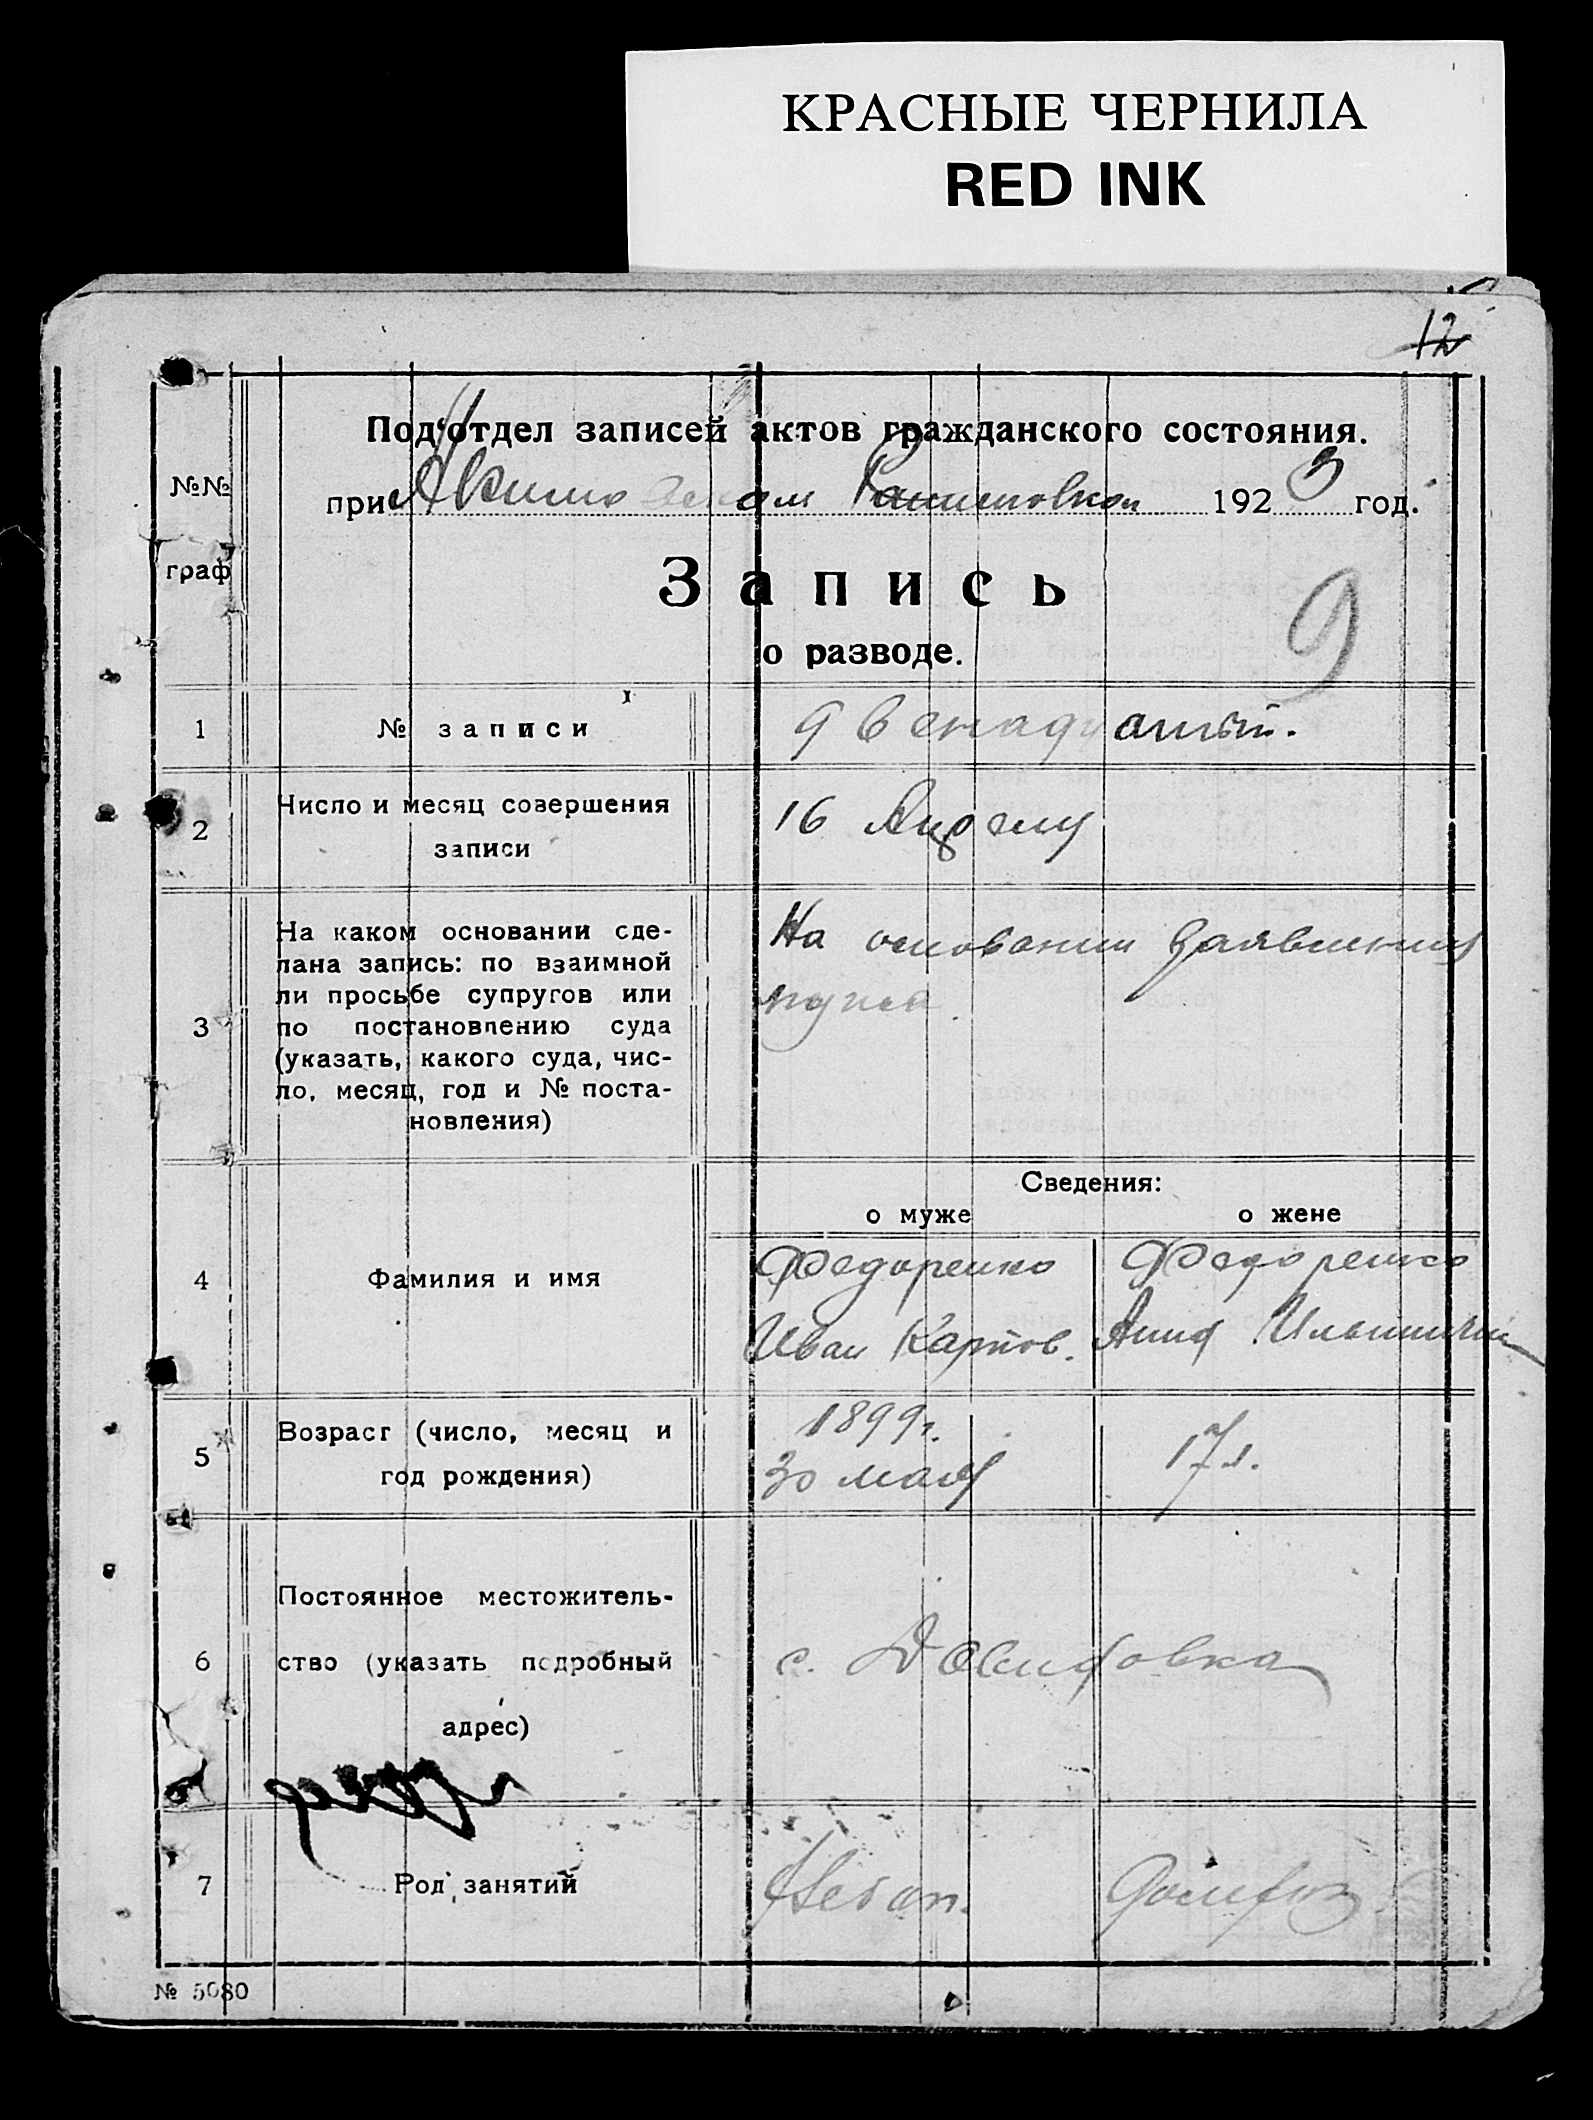 КРАСНЫЕ ЧЕРНИЛА
RED INK
12
Под'отдел записей актов гражданского состояния.
№№
при 1923 год.
граф
Запись
9
о разводе.
1 № записи двенадцатый.
2 Число и месяц совершения
записи
16 Апреля
3 На каком основании сде-
лана запись: по взаимной
ли просьбе супругов или
по постановлению суда
(указать, какого суда, чис-
ло, месяц, год и № поста-
новления)
На основании заявления
мужа.
Сведения:
о муже о жене
4 Фамилия и имя
Федоренко Федоренко
Иван Карпов. Анна
5 Возраст (число, месяц и
год рождения)
1899г.
30 мая
17 л.
6 Постоянное местожитель-
ство (указать подробный
адрес)
с. Давидовка
7 Род занятий
Хлебоп. Домхоз.
№ 5080